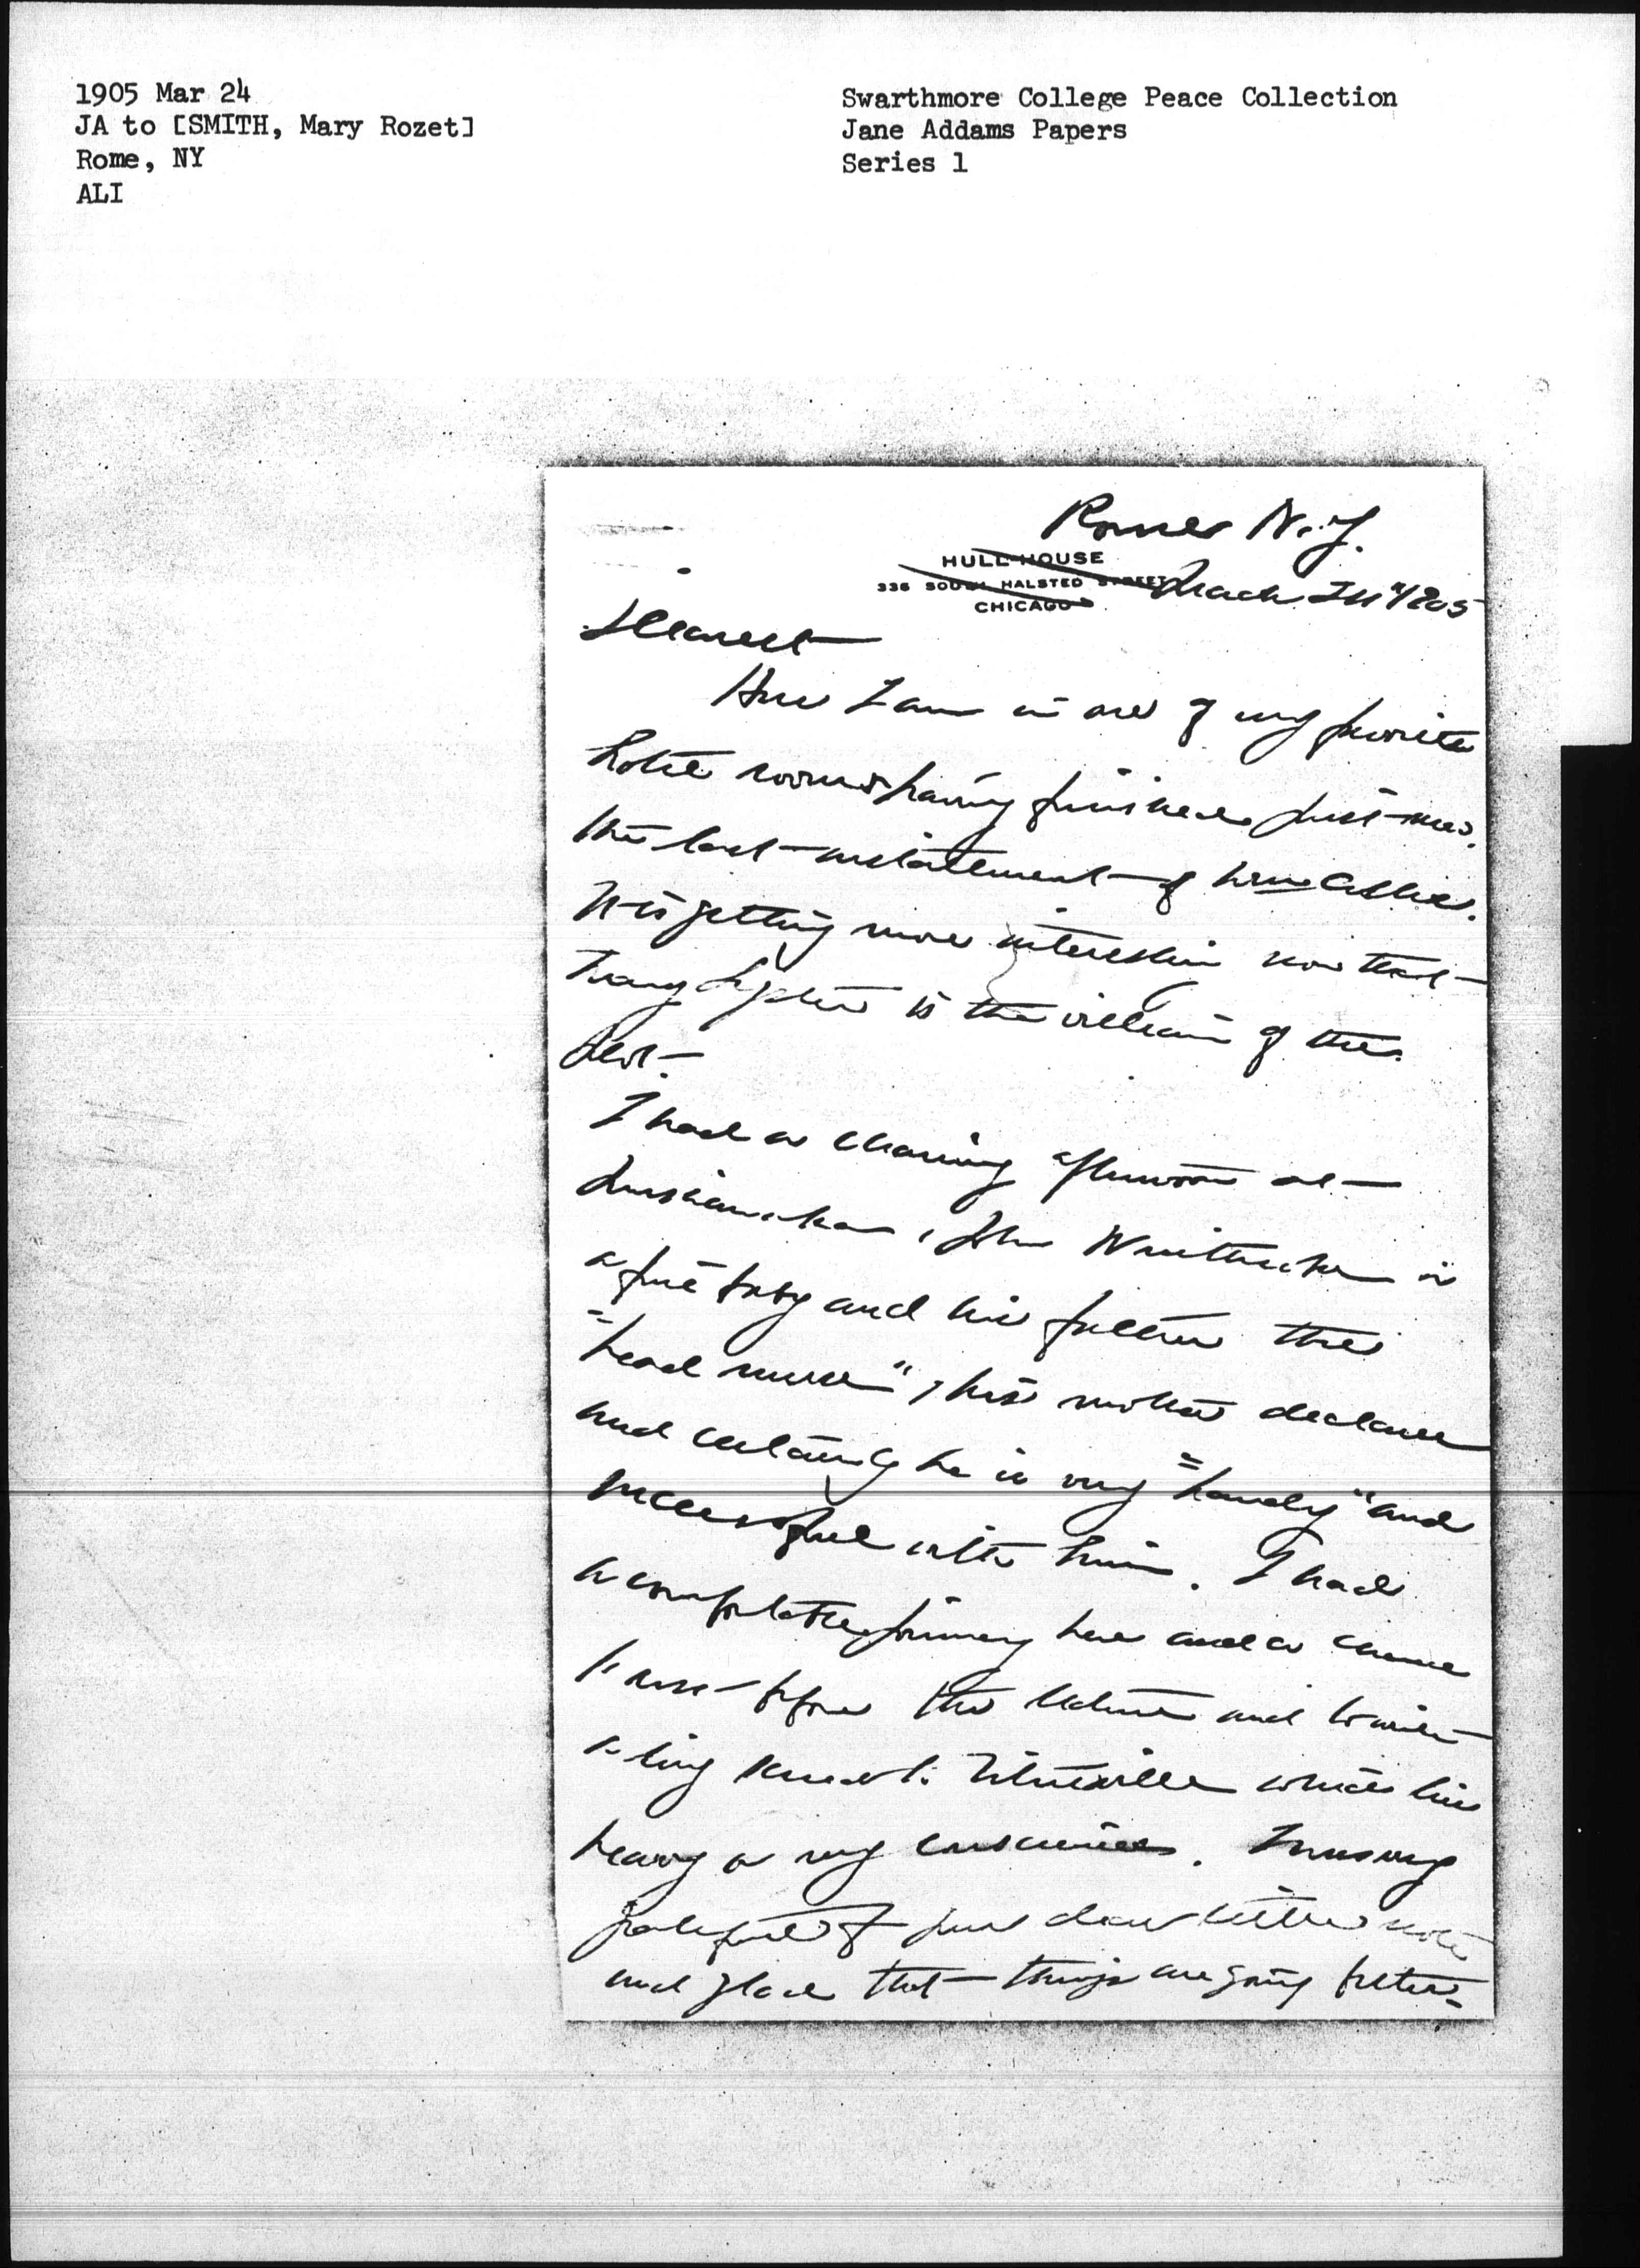 1905 Mar 24
JA to [SMITH, Mary Rozet]
Rome, NY
ALI
Swarthmore College Peace Collection
Jane Addams Papers
Series 1
Rome N.Y.
HULL-HOUSE
335 SOUTH HALSTED STREET
CHICAGO
March 24" 1905
Dearest
Here I am in one of my favorite
hotel rooms having finished just now
the last installment of
It is getting more interesting now that
is the villain of the
plot.
I had a charming afternoon at
, John is
a fine baby and his father the
"head nurse", his mother declares
and certainly he is very "handy" and
successful with him. I had
a comfortable journey here and a
hour before the lecture and to write
a long which lies
heavy on my conscience. I was very
grateful for your dear letter
and glad that things are going better.